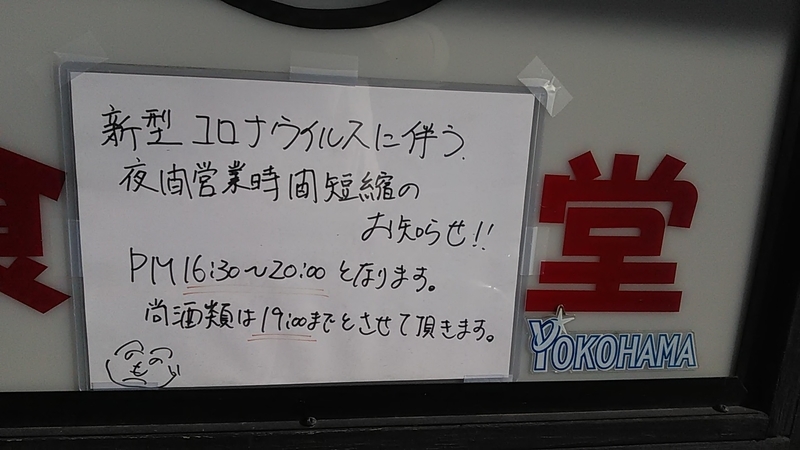 新型コロナウイルスに伴う、
夜間営業時間短縮の
お知らせ!!
PM 16:30~20:00 となります。
尚酒類は19:00までとさせて頂きます。
堂
YOKOHAMA